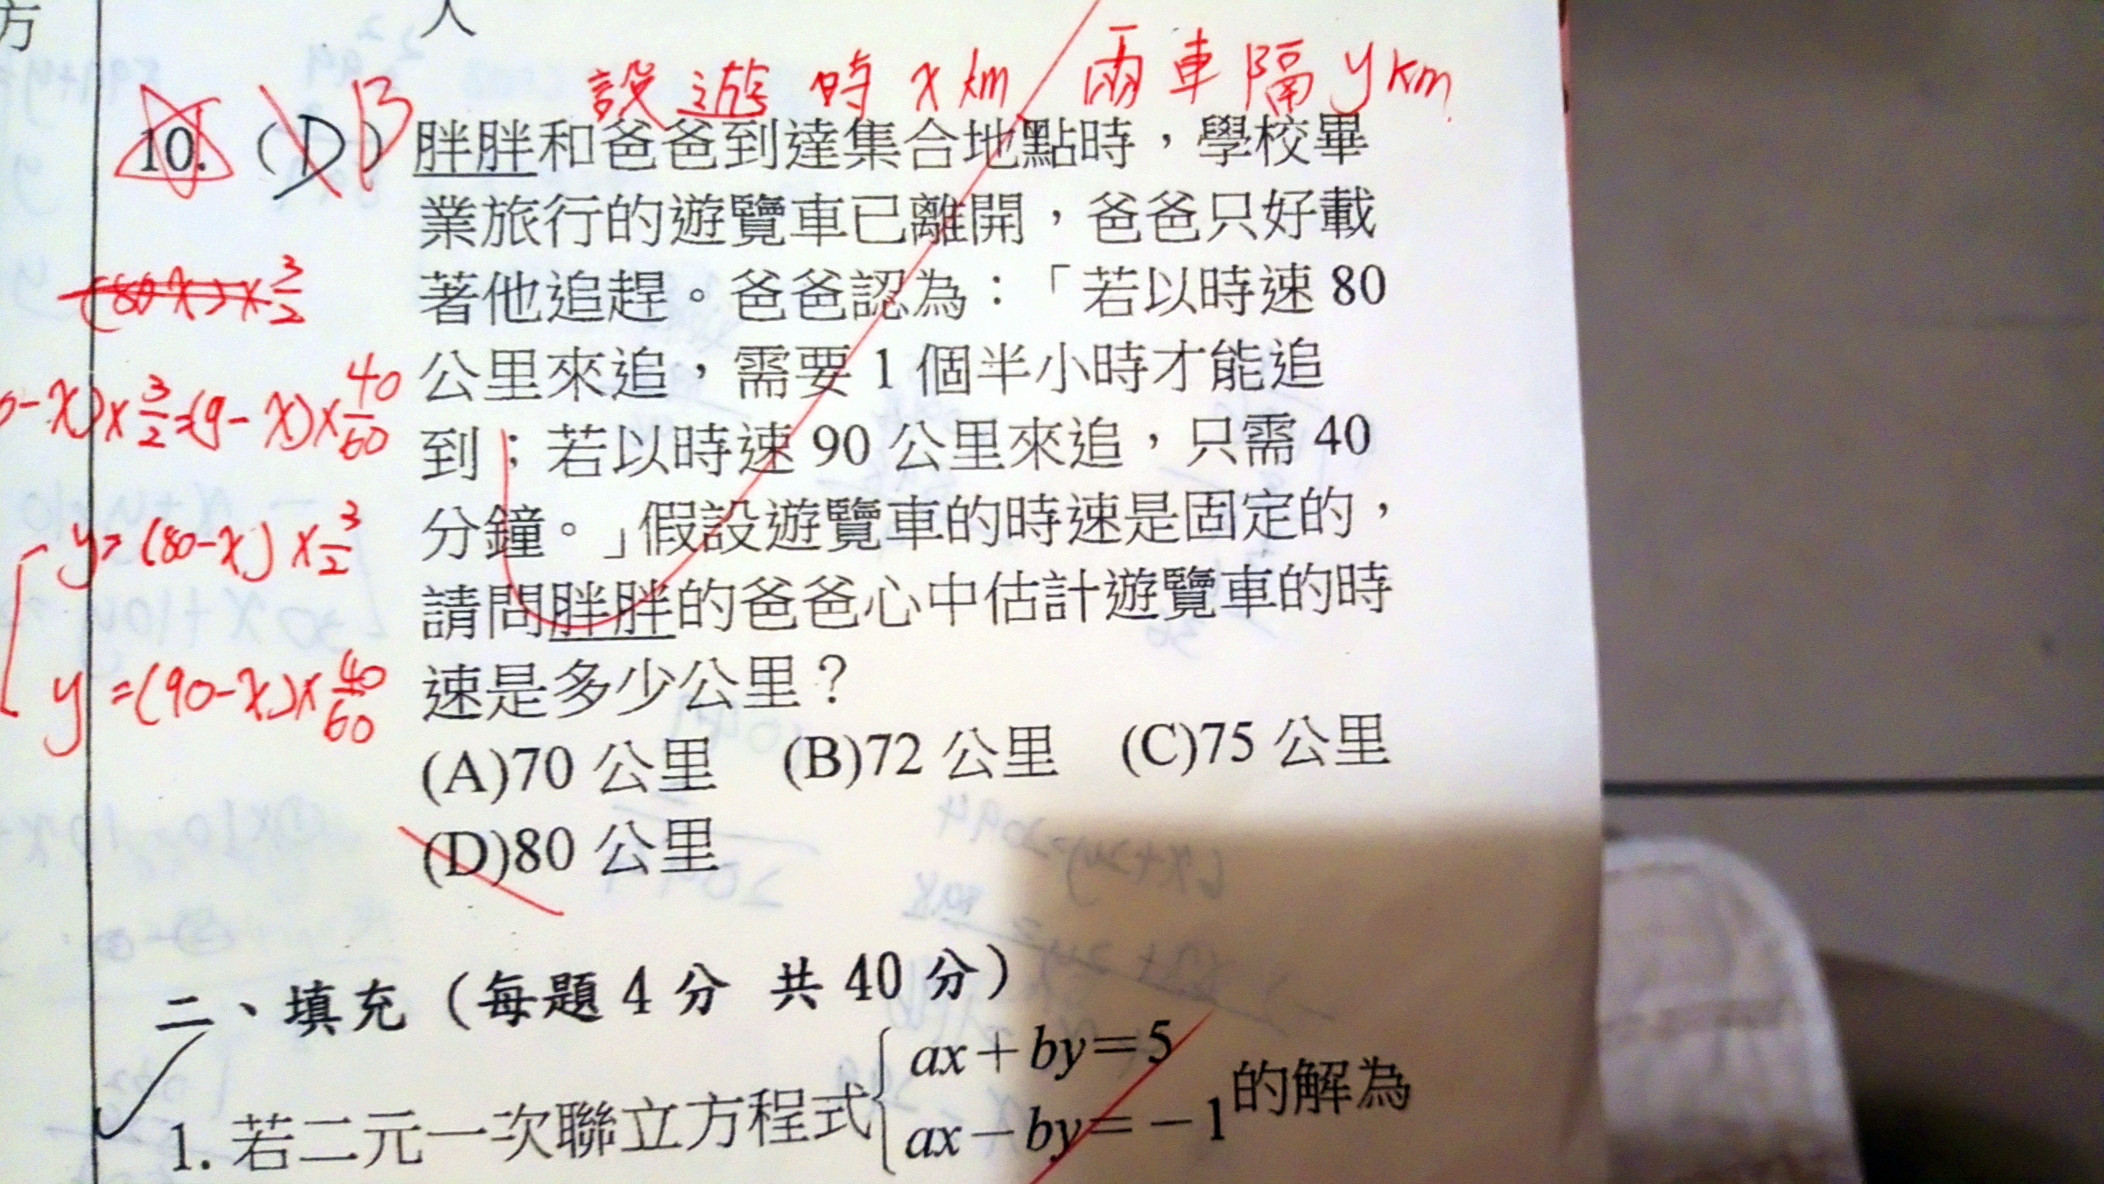 方
人
設遊時 x km 兩車隔 y km
10. (D) B 胖胖和爸爸到達集合地點時，學校畢
業旅行的遊覽車已離開，爸爸只好載
(80-x)×3/2 著他追趕。爸爸認為：「若以時速 80
公里來追，需要 1 個半小時才能追
0-x)×3/2=(9-x)×40/60
到；若以時速 90 公里來追，只需 40
分鐘。」假設遊覽車的時速是固定的，
y=(80-x)×3/2
請問胖胖的爸爸心中估計遊覽車的時
y=(90-x)×40/60 速是多少公里？
(A)70 公里 (B)72 公里 (C)75 公里
(D)80 公里
二、填充（每題 4 分 共 40 分）
1. 若二元一次聯立方程式{ax+by=5
ax-by=-1 的解為